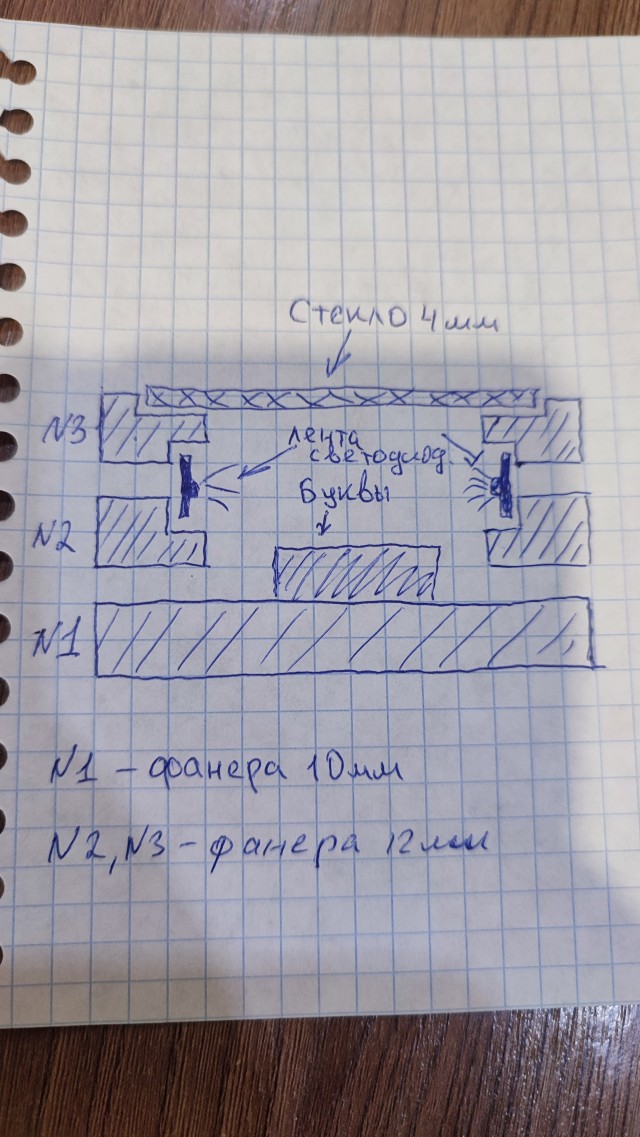 Стекло 4мм
N3
лента
светодиод.
Буквы
N2
N1
N1 – фанера 10мм
N2, N3 – фанера 12мм